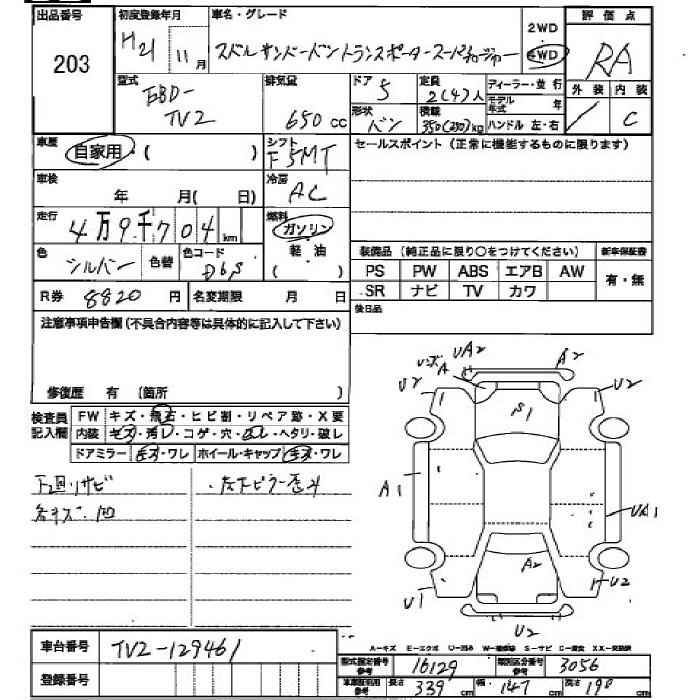 出品番号 初度登録年月 車名・グレード 2WD 評価点
203 H21 11月 スバル サンバーバン トランスポーター スーパーチャージャー 4WD RA
型式 排気量 ドア 定員 ディーラー・並行 外装 内装
EBD- 5 2(4)人 モデル年式 年 C
TV2 650 cc 形状 バン 積載 350(250)kg ハンドル 左・右
車歴 自家用・( ) シフト F5MT セールスポイント(正常に機能するものに限ります)
車検 年 月(日) 冷房 AC
走行 4万9千704km 燃料 ガソリン
軽・油
( )
色 シルバー 色替 色コード D6S
装備品(純正品に限り○をつけてください) 新車保証書
PS PW ABS エアB AW 有・無
SR ナビ TV カワ
R券 8820 円 名変期限 月 日 後日品
注意事項申告欄(不具合内容等は具体的に記入して下さい)
修復歴 有(箇所 )
検査員記入欄 FW キズ・飛石・ヒビ割・リペア跡・X要
内装 キズ・汚レ・コゲ・穴・ ・ヘタリ・破レ
ドアミラー キズ・ワレ ホイール・キャップ キズ・ワレ
下回・サビ
各キズ・凹
UA2
A2
A
U2
U2
S1
A1
UA1
A2
U1
U2
U2
車台番号 TV2-129461
登録番号
A-キズ E-エクボ U-凹み W-補修跡 S-サビ C-腐食 XX-交換済
型式指定番号 参考 16129 類別区分番号 参考 3056
車庫証明用 参考 長さ 339 cm 幅 147 cm 高さ 190 cm